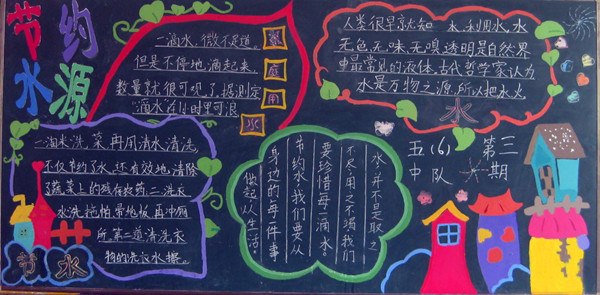 节约
水源
一滴水,微不足道。
但是不停地滴起来,
数量就很可观了,据测定
"滴水"在1小时里可浪
家
庭
用
水
人类很早就知 水,利用水,水
无色、无味、无嗅透明是自然界
中最常见的液体,古代哲学家认为
水是万物之源,所以把水火
一淘米洗菜,再用清水清洗
不仅节约了水,还有效地清除
了蔬菜上的残存农药,二洗衣
水洗拖怕、带地板、再冲厕
所,第二道清洗衣
物的洗衣水擦。
节水
水,并不是取之
不尽,用之不竭,我们
要珍惜每一滴水。
节约水,我们要从
身边的每一件事
做起,从生活。
五(6) 第三
中队 期